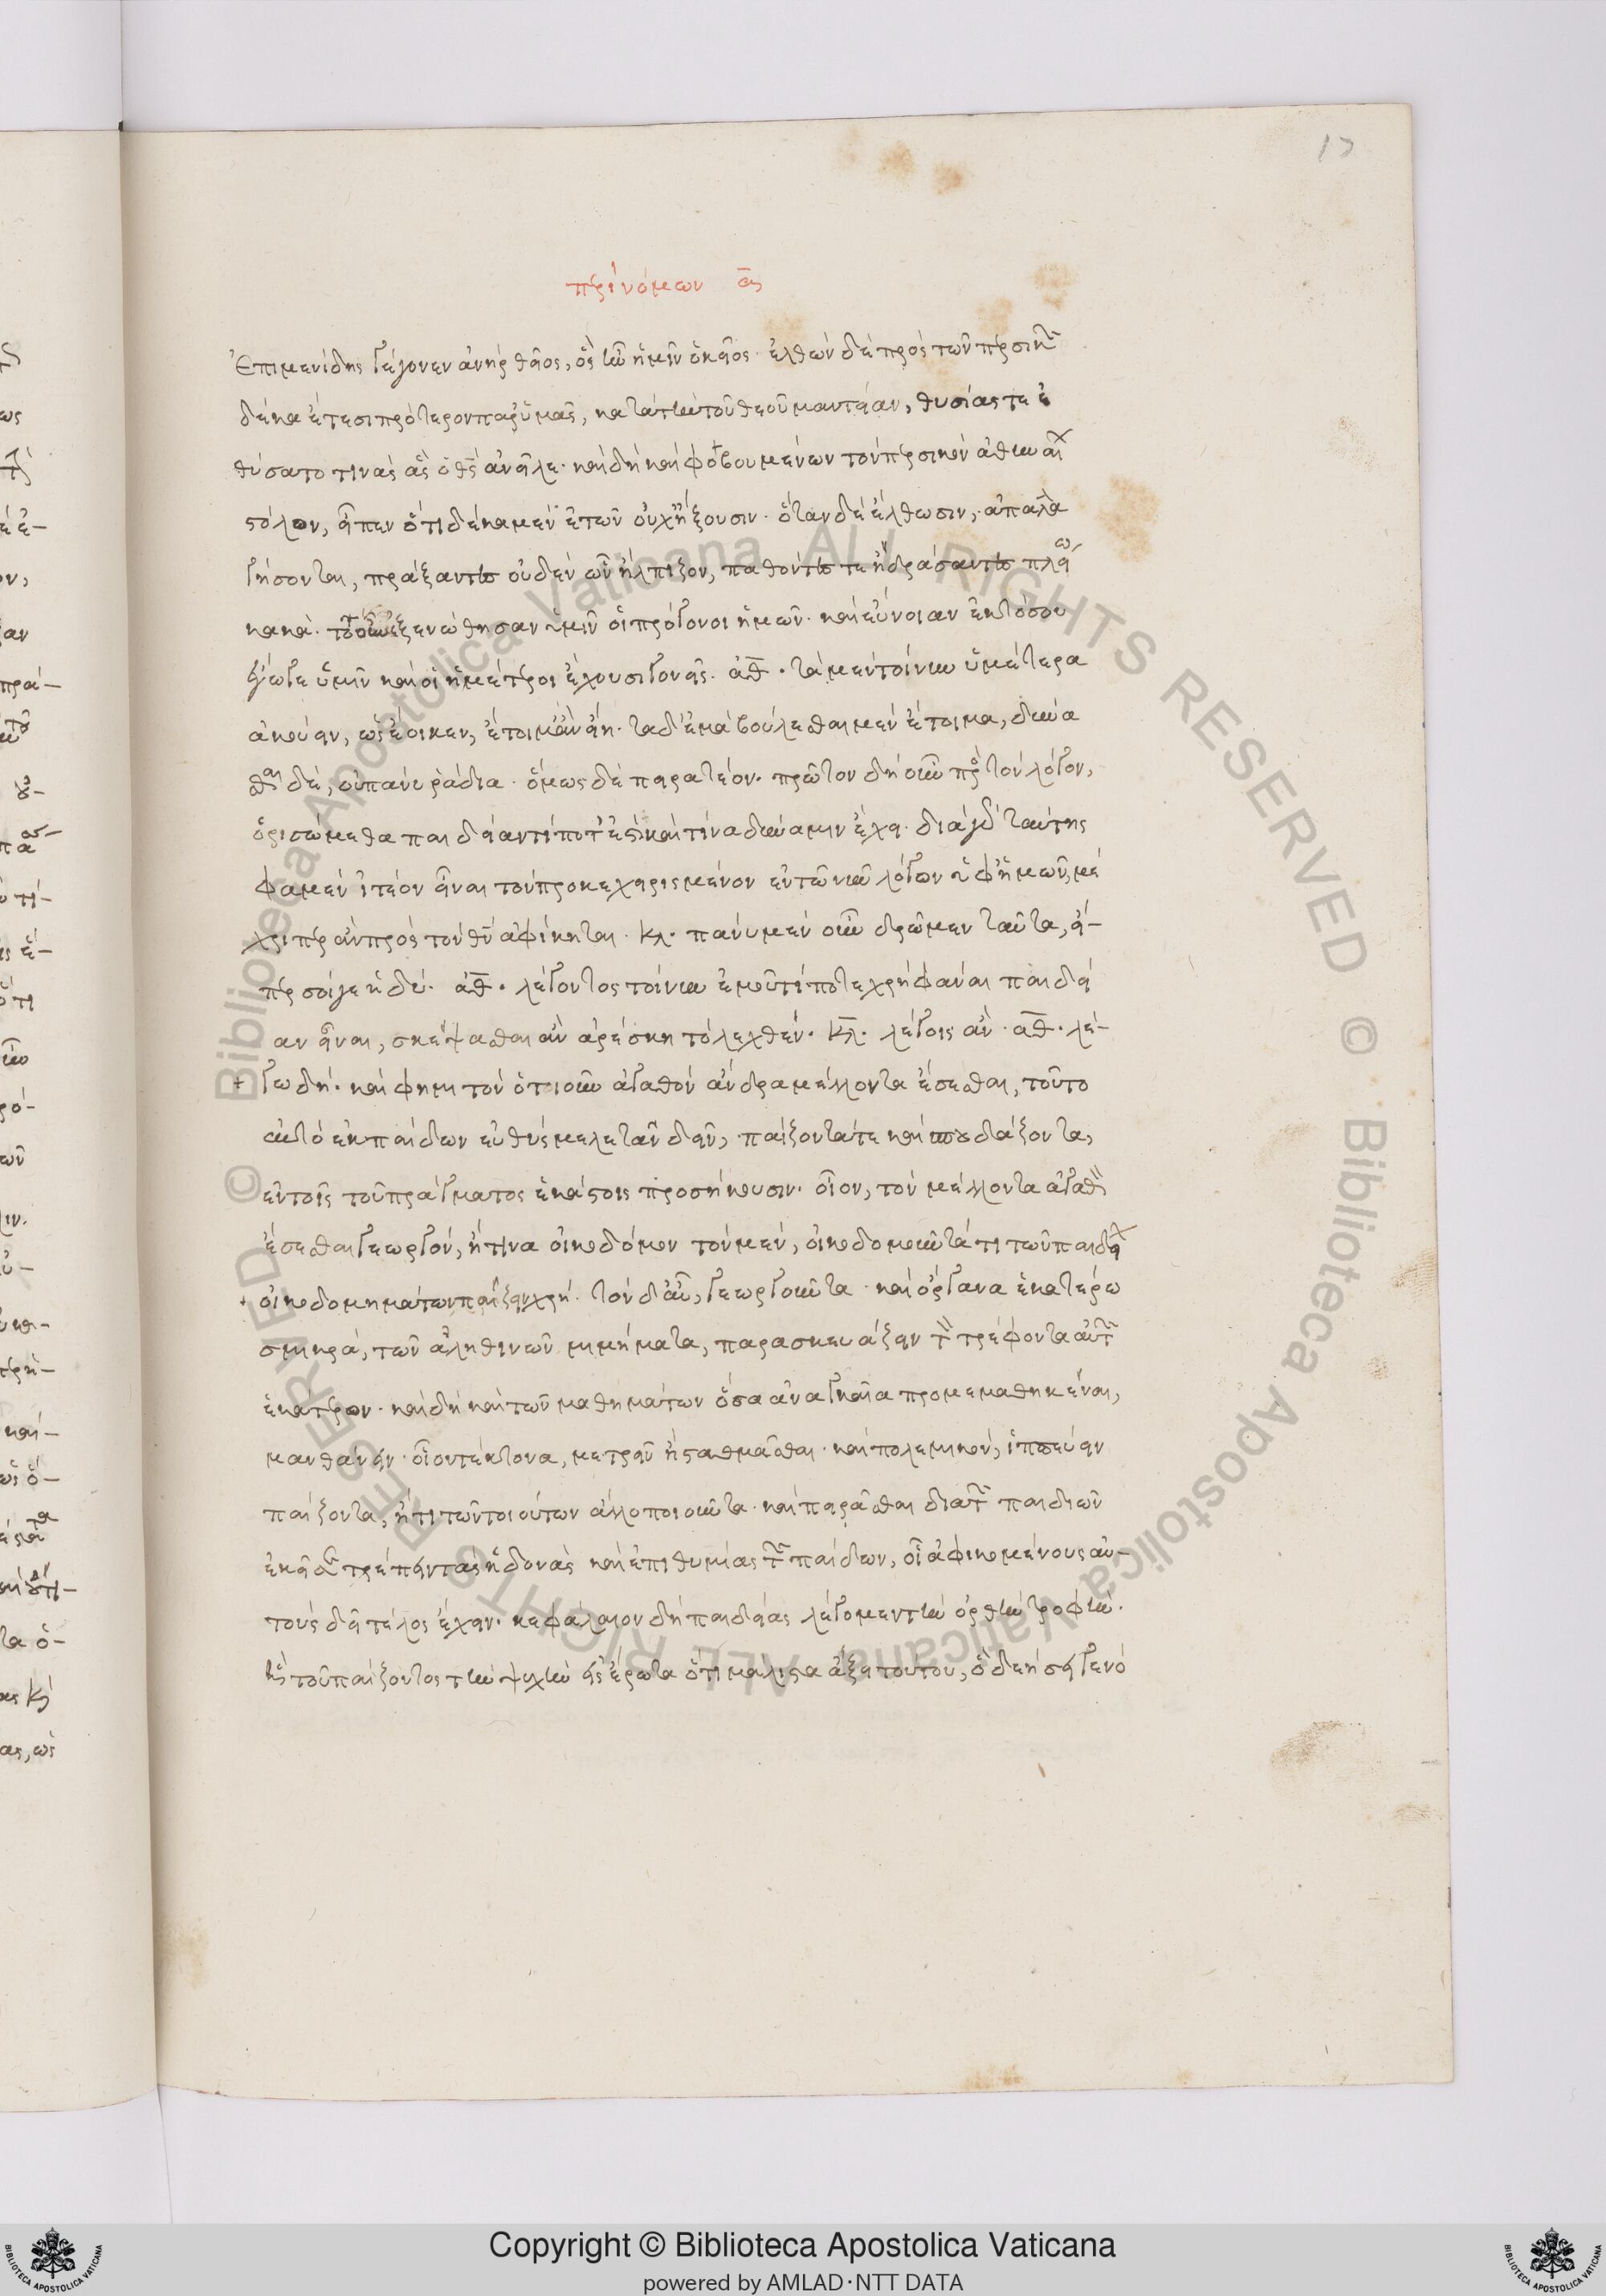 17
περὶ νόμων ᾱς
Ἐπιμενίδης γέγονεν ἀνὴρ θεῖος, ὃς ἦν ἡμῖν οἰκεῖος· ἐλθὼν δὲ πρὸ τῶν περσικῶν
δέκα ἔτεσι πρότερον παρ' ὑμᾶς, κατὰ τὴν τοῦ θεοῦ μαντείαν, θυσίας τε ἐ
θύσατο τινὰς ἃς ὁ θς ἀνεῖλε· καὶ δὴ καὶ φοβουμένων τὸν περσικὸν ἀθηναίων
στόλον, εἶπεν ὅτι δέκα μὲν ἐτῶν οὐχ ἥξουσιν· ὅταν δὲ ἔλθωσιν, ἀπαλλα
γήσονται, πράξαντες οὐδὲν ὧν ἤλπιζον, παθόντες τε ἢ δράσαντες πλείω
κακά. τότ' οὖν ἐξενώθησαν ὑμῖν οἱ πρόγονοι ἡμῶν· καὶ εὔνοιαν ἐκ τόσου
ἔγωγε ὑμῖν καὶ οἱ ἡμέτεροι ἔχουσι γονεῖς. ἀθ. τὰ μὲν τοίνυν ὑμέτερα
ἀκούειν, ὡς ἔοικεν, ἕτοιμ' ἂν εἴη· τὰ δ' ἐμὰ βούλεσθαι μὲν ἕτοιμα, δύνα
σθαι δὲ, οὐ πάνυ ῥάδια· ὅμως δὲ πειρατέον. πρῶτον δὴ οὖν πρὸς τὸν λόγον,
ὁρισώμεθα παιδείαν τί ποτ' ἐστὶ καὶ τίνα δύναμιν ἔχει· διὰ γὰρ ταύτης
φαμὲν ἰτέον εἶναι τὸν προκεχειρισμένον ἐν τῷ νῦν λόγον ὑφ' ἡμῶν, μέ
χρι περ ἂν πρὸς τὸν θν ἀφίκηται. κλ. πάνυ μὲν οὖν δρῶμεν ταῦτα, εἴ-
περ σοί γε ἡδύ. ἀθ. λέγοντος τοίνυν ἐμοῦ τί ποτε χρὴ φάναι παιδεί
αν εἶναι, σκέψασθαι ἂν ἀρέσκη τὸ λεχθέν. κλ. λέγοις ἄν. ἀθ. λέ-
γω δή. καὶ φημι τὸν ὁτιοῦν ἀγαθὸν ἄνδρα μέλλοντα ἔσεσθαι, τοῦτο
αὐτὸ ἐκ παίδων εὐθὺς μελετᾶν δεῖν, παίζοντά τε καὶ σπουδάζοντα,
ἐν τοῖς τοῦ πράγματος ἑκάστοις προσήκουσιν. οἷον, τὸν μέλλοντα ἀγαθὸν
ἔσεσθαι γεωργόν, ἤ τινα οἰκοδόμον τὸν μὲν, οἰκοδομοῦντά τι τῶν παιδείων
οἰκοδομημάτων παίζειν χρή. τὸν δ' αὖ, γεωργοῦντα· καὶ ὄργανα ἑκατέρω
σμικρά, τῶν ἀληθινῶν μιμήματα, παρασκευάζειν τὸν τρέφοντα αὐτῶν
ἑκάτερον. καὶ δὴ καὶ τῶν μαθημάτων ὅσα ἀναγκαῖα προμεμαθηκέναι,
μανθάνειν· οἷον τέκτονα, μετρεῖν ἢ σταθμᾶσθαι· καὶ πολεμικόν, ἱππεύειν
παίζοντα, ἤ τι τῶν τοιούτων ἄλλο ποιοῦντα· καὶ πειρᾶσθαι διὰ τῶν παιδιῶν
ἐκεῖσε τρέπειν τὰς ἡδονὰς καὶ ἐπιθυμίας τῶν παίδων, οἷ ἀφικομένους αὐ-
τοὺς δεῖ τέλος ἔχειν. κεφάλαιον δὴ παιδείας λέγομεν τὴν ὀρθὴν τροφήν.
ἣ τοῦ παίζοντος τὴν ψυχὴν εἰς ἔρωτα ὅτι μάλιστα ἄξει τούτου, ὃ δεήσει γενό